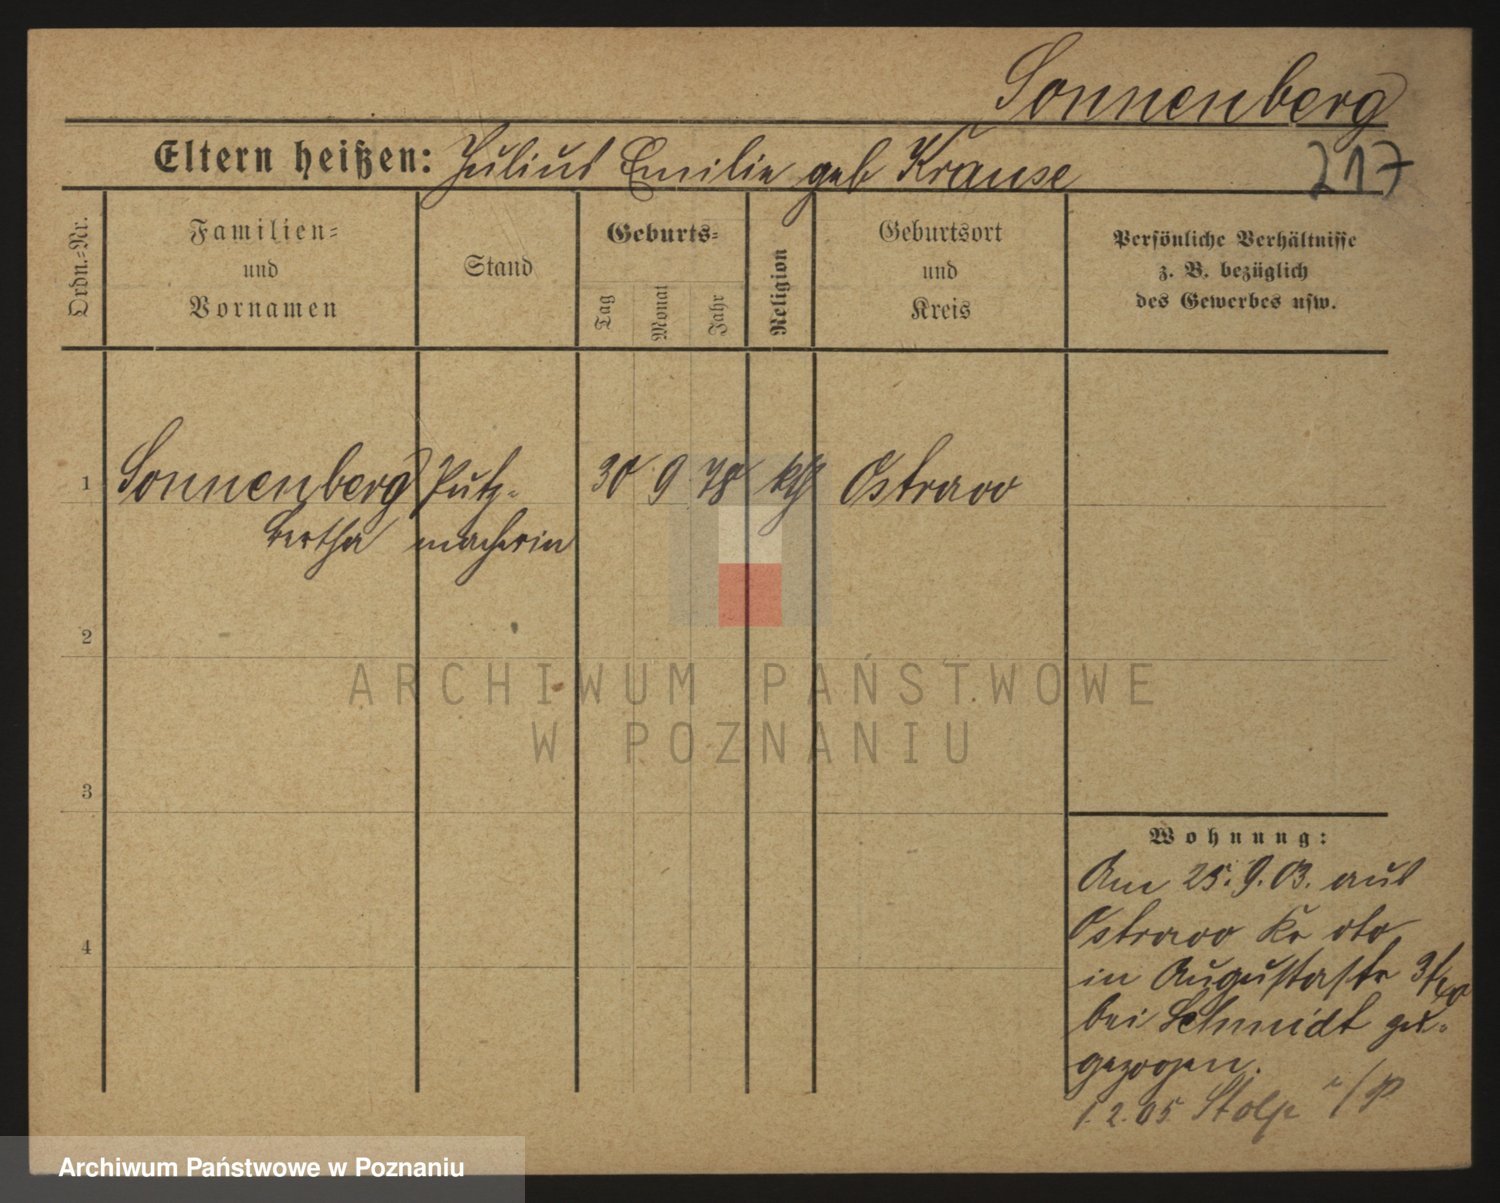 Sonnenberg
Eltern heißen: Julius Emilie geb Krause
217
Ordn.-Nr.
Familien-
und
Vornamen
Stand
Geburts-
Tag
Monat
Jahr
Religion
Geburtsort
und
Kreis
Persönliche Verhältnisse
z. B. bezüglich
des Gewerbes usw.
1
Sonnenberg Putz- 30 9 78 kth Ostrowo
Bertha macherin
2
3
4
Wohnung:
Am 25.9.03. aus
Ostrowo Kr dto
in Augustastr
bei Schmidt zu-
gezogen.
1.2.05 Stolp i/P
ARCHIWUM PAŃSTWOWE
W POZNANIU
Archiwum Państwowe w Poznaniu